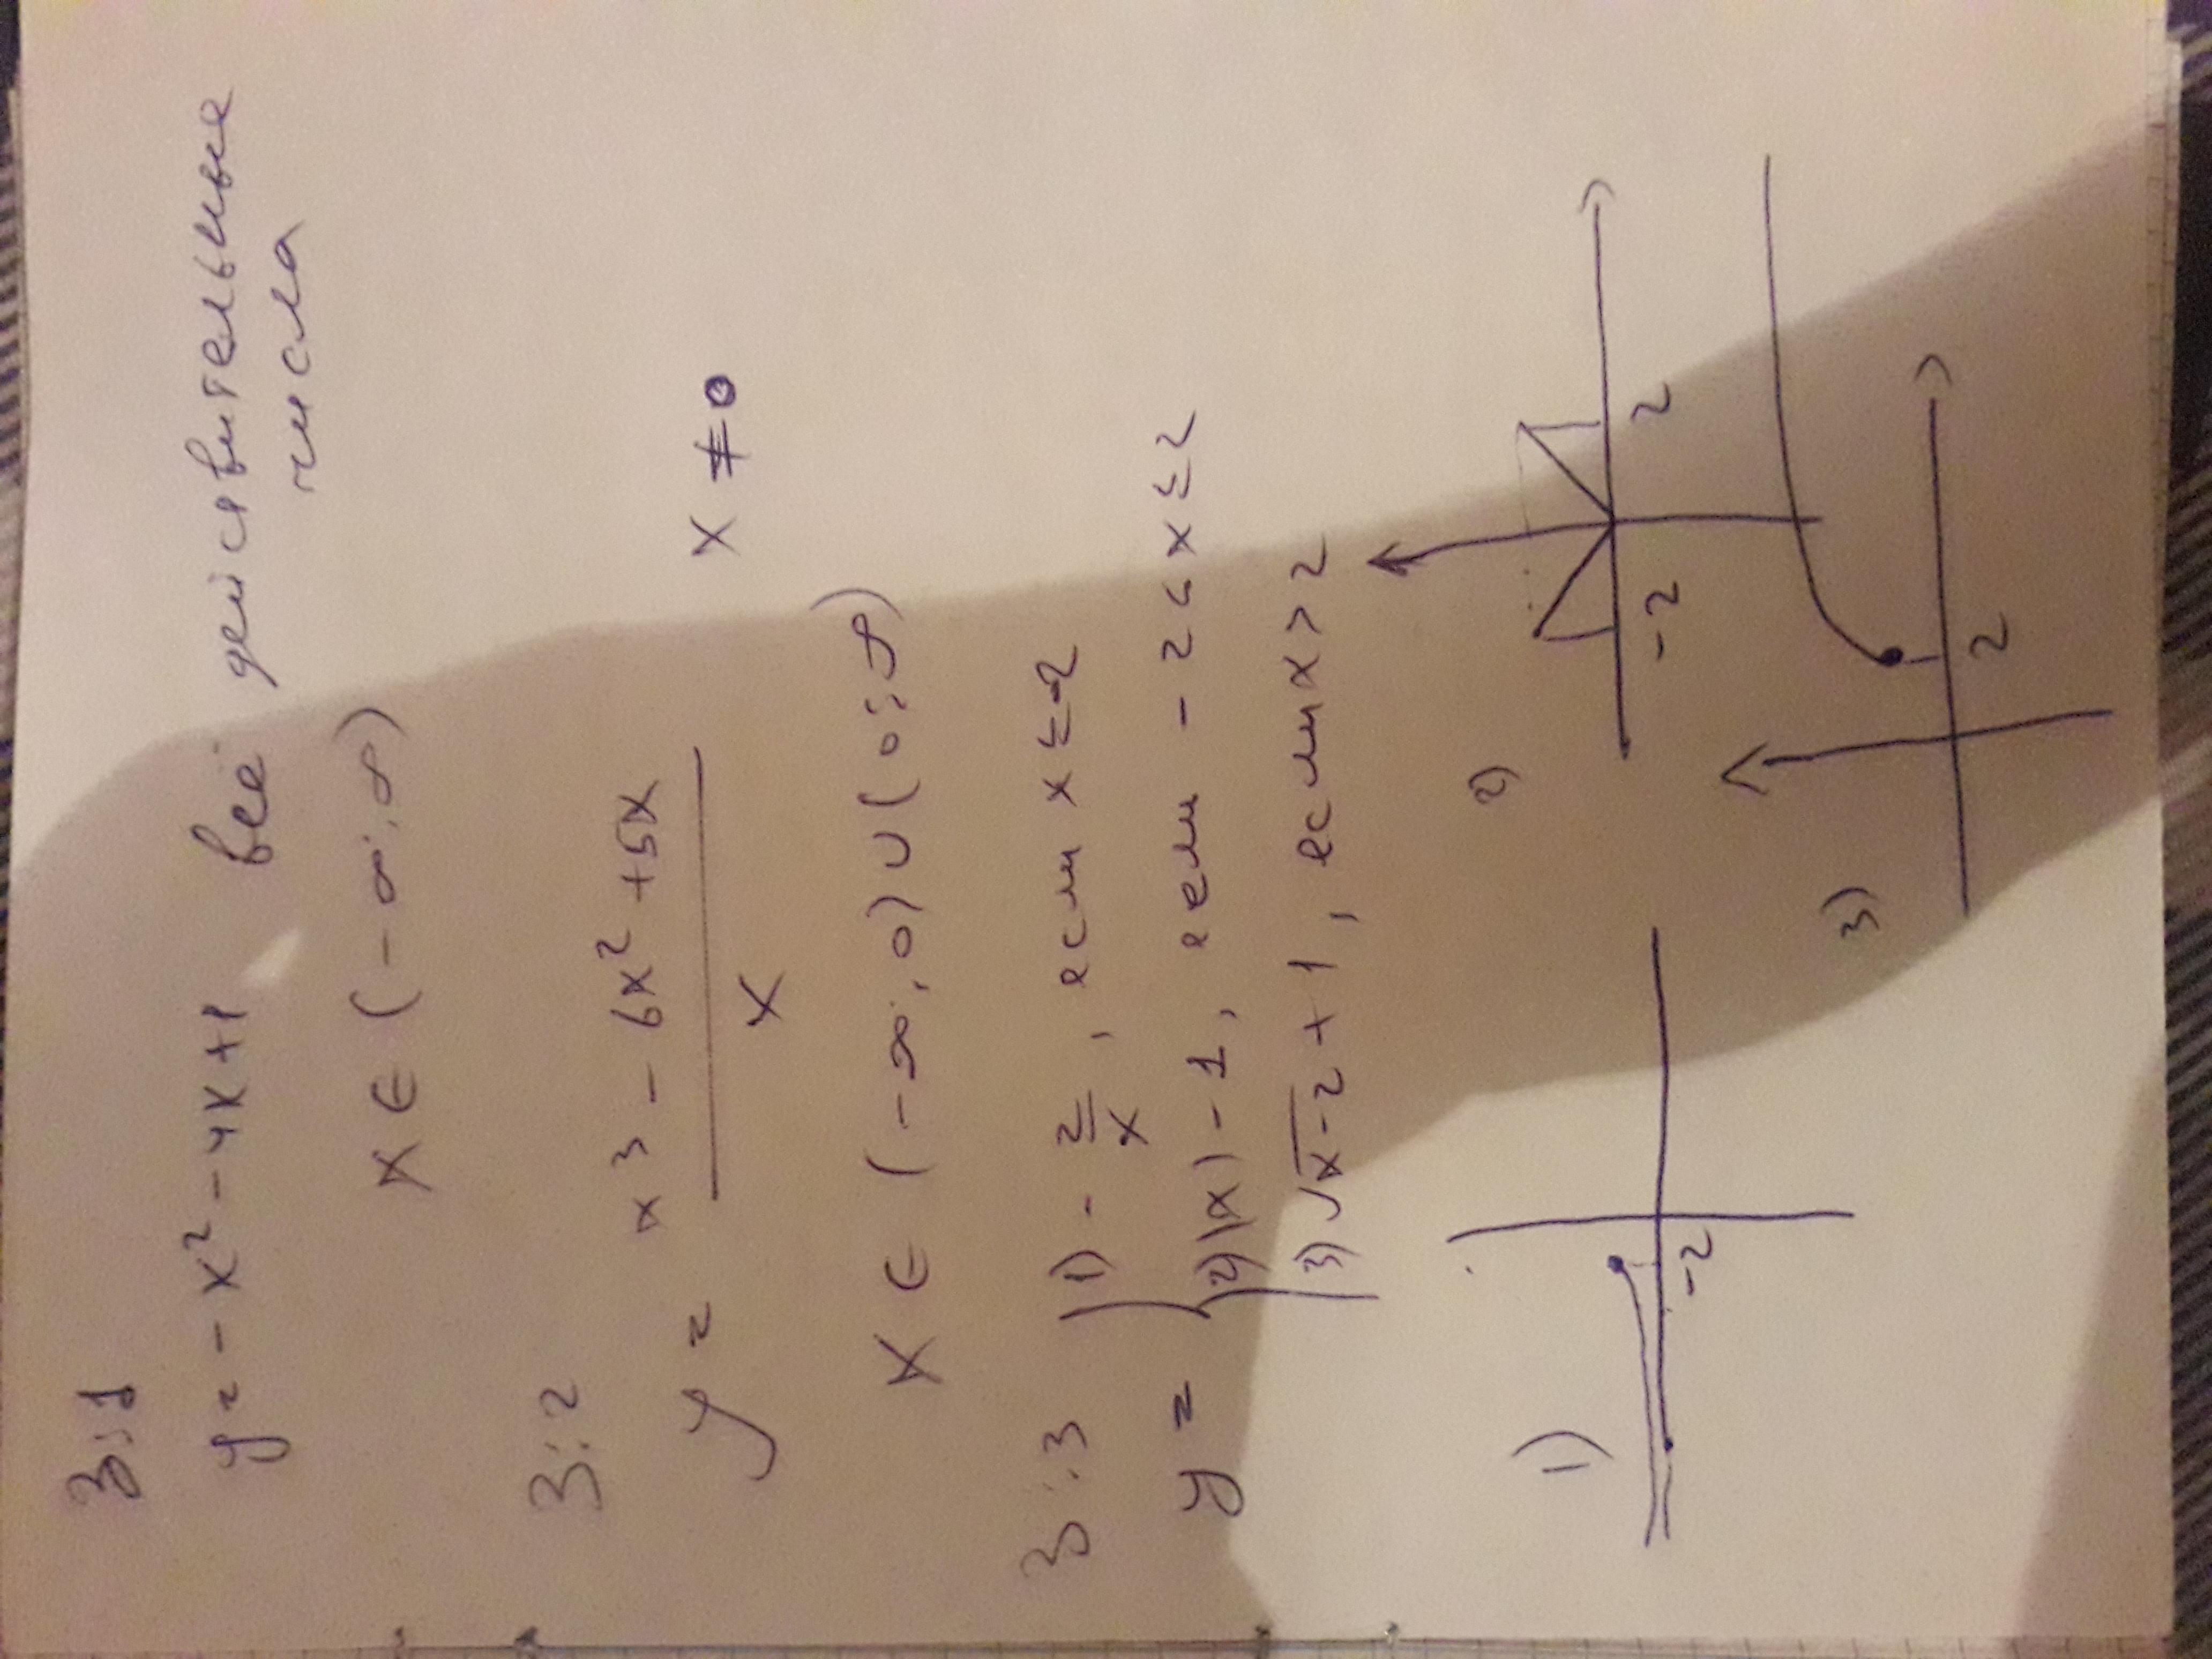 3:1
y = -x² - 4x + 1 все действительные
числа
x ∈ (-∞; ∞)
3:2
y = x³ - 6x² + 5x
x
x ≠ 0
x ∈ (-∞; 0) ∪ (0; ∞)
3:3
y =
1) - 2/x, если x ≤ -2
2) |x| - 1, если -2 < x ≤ 2
3) √x-2 + 1, если x > 2
1)
-2
2)
-2 2
3)
2